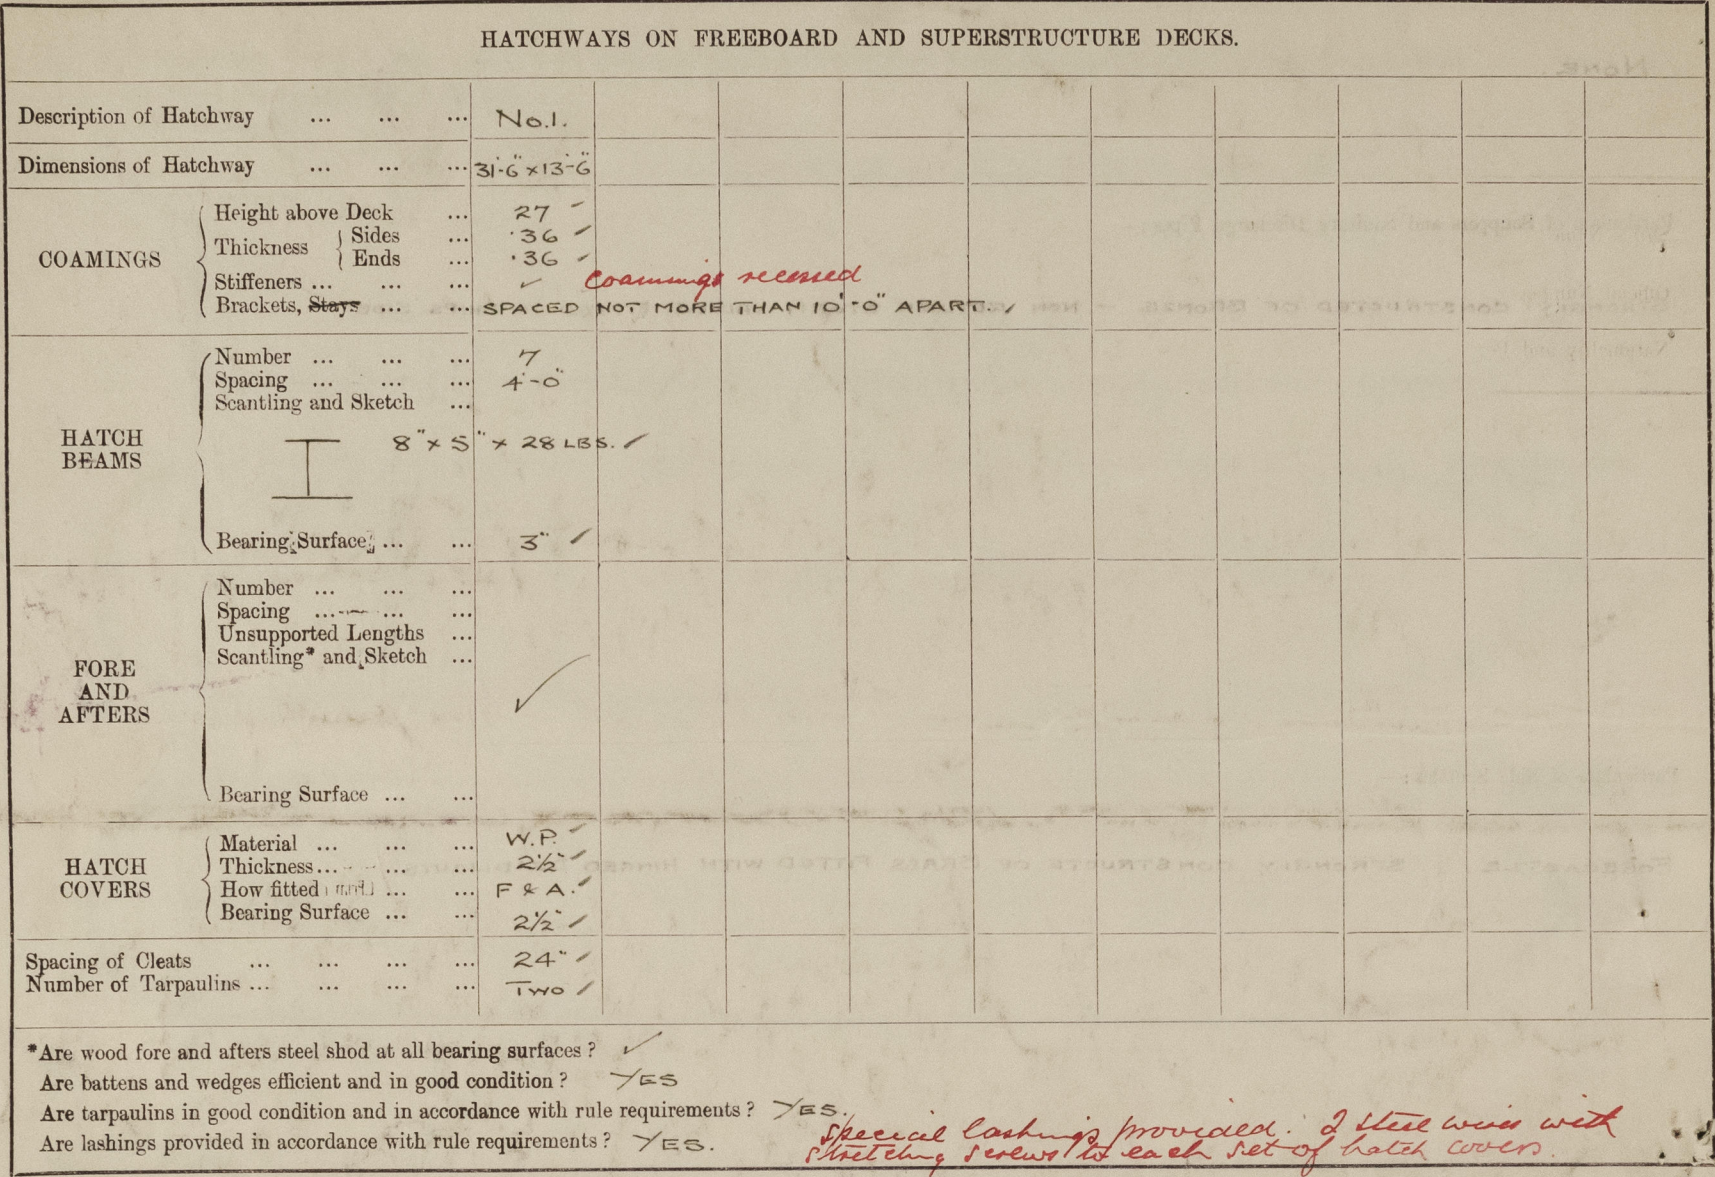 HATCHWAYS ON FREEBOARD AND SUPERSTRUCTURE DECKS.
Description of Hatchway ... ... ... No.1.
Dimensions of Hatchway ... ... ... 31'-6" x 13'-6"
COAMINGS
Height above Deck ... 27
Thickness
Sides ... .36
Ends ... .36
Stiffeners ... ... ... ✓ Coamings recessed
Brackets, Stays ... ... SPACED NOT MORE THAN 10'-0" APART. ✓
HATCH BEAMS
Number ... ... ... 7
Spacing ... ... ... 4'-0"
Scantling and Sketch ...
8" x 5" x 28 LBS. ✓
Bearing Surface ... ... 3" ✓
FORE AND AFTERS
Number ... ... ...
Spacing ... ... ...
Unsupported Lengths ...
Scantling* and Sketch ...
✓
Bearing Surface ... ...
HATCH COVERS
Material ... ... ... W.P. ✓
Thickness ... ... ... 2½" ✓
How fitted ... ... F & A. ✓
Bearing Surface ... ... 2½" ✓
Spacing of Cleats ... ... ... ... 24" ✓
Number of Tarpaulins ... ... ... ... TWO ✓
*Are wood fore and afters steel shod at all bearing surfaces ? ✓
Are battens and wedges efficient and in good condition ? YES
Are tarpaulins in good condition and in accordance with rule requirements ? YES.
Are lashings provided in accordance with rule requirements ? YES.
Special lashings provided. 2 steel wires with
stretching screws to each set of hatch covers.